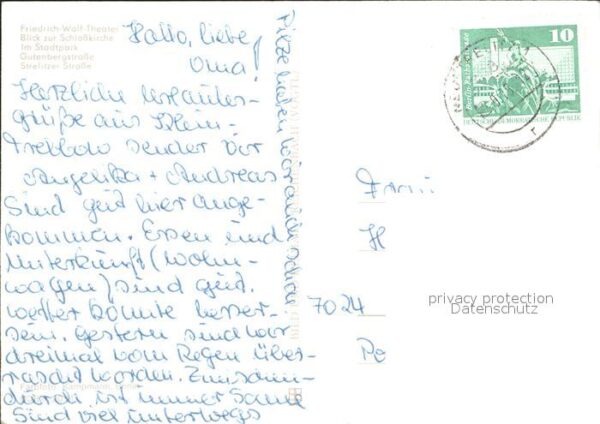 Friedrich-Wolf-Theater
Blick zur Schloßkirche
Im Stadtpark
Gutenbergstraße
Strelitzer Straße
Hallo, liebe
Oma!
Herzliche Urlaubs-
grüße aus Klein-
Trebbow sendet Dir
Angelika + Andreas
Sind gut hier ange-
kommen. Essen und
Unterkunft (Wohn-
wagen) sind gut.
Wetter könnte besser
sein. Gestern sind wir
dreimal vom Regen über-
rascht worden. Zwischen-
durch ist immer Sonne
Sind viel unterwegs
Pilze haben wir auch schon
10
Berlin, Rathausstraße
DEUTSCHE DEMOKRATISCHE REPUBLIK
Fam
H
7024
privacy protection
Datenschutz